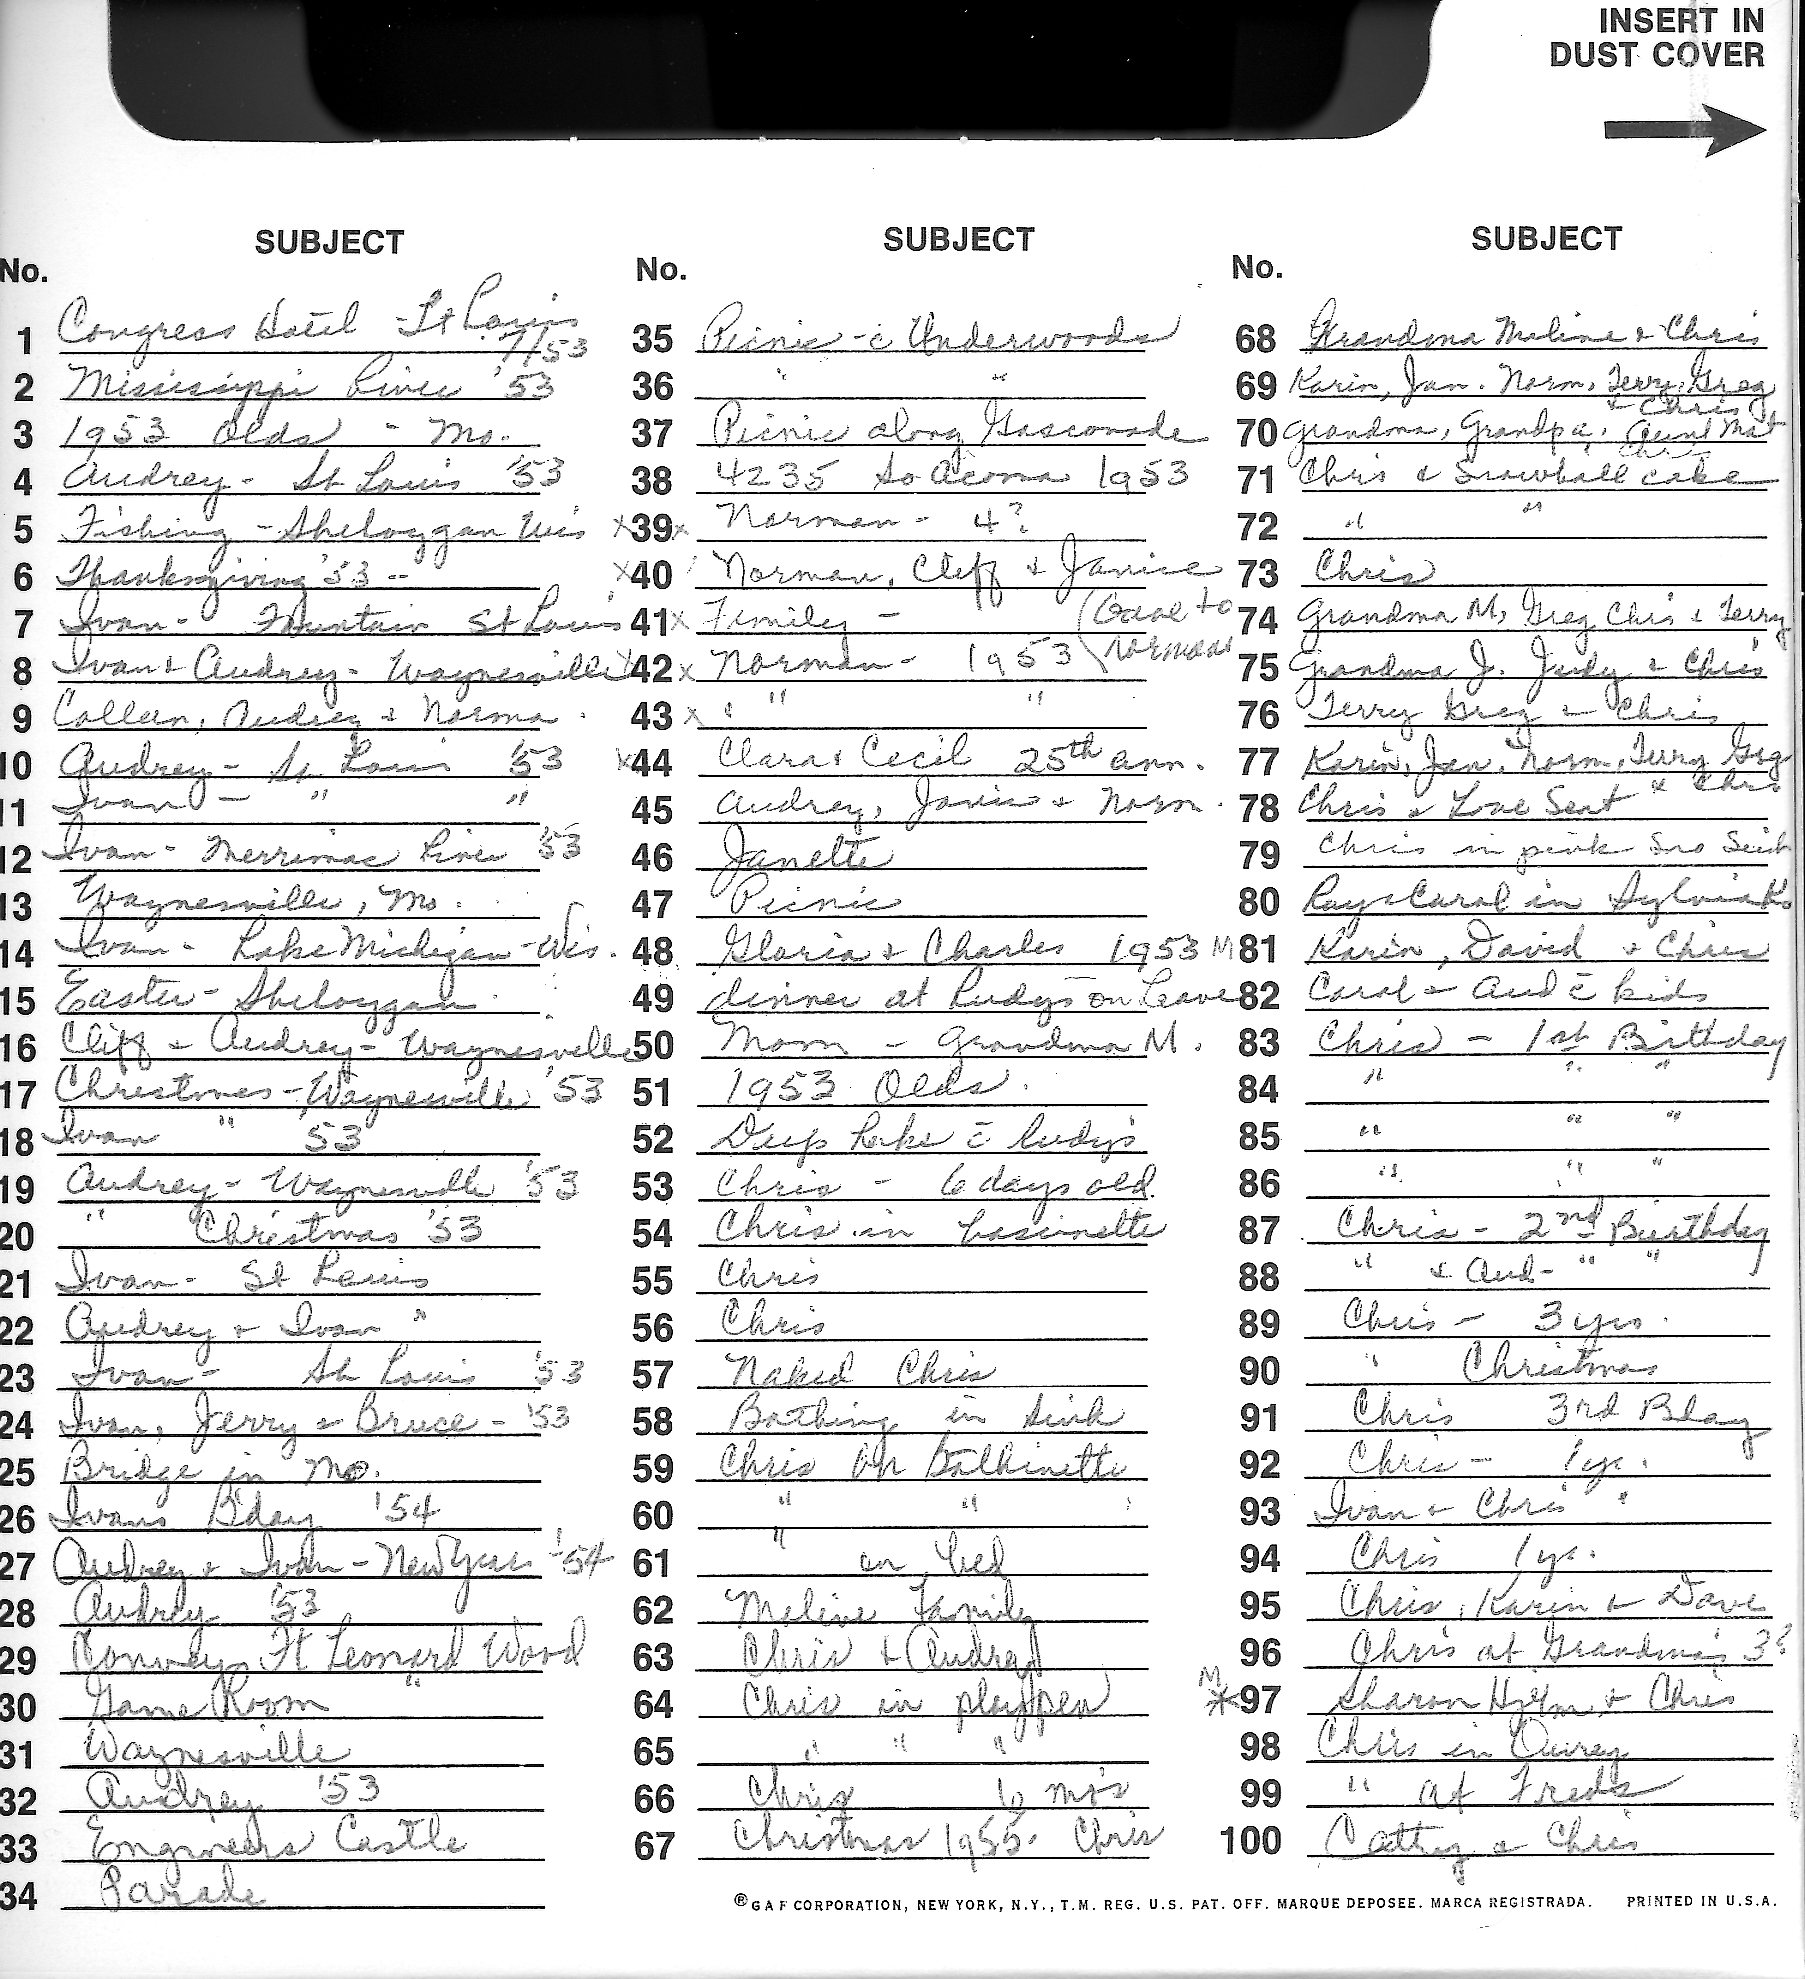 INSERT IN
DUST COVER
SUBJECT
No.
1 Congress Hotel - St Louis 7/53
2 Mississippi River '53
3 1953 Olds - Mo.
4 Audrey - St Louis '53
5 Fishing - Sheboygan Wis
6 Thanksgiving '53 --
7 Ivan - Fountain St Louis
8 Ivan & Audrey - Waynesville
9 Colleen, Audrey & Norma
10 Audrey - St. Louis '53
11 Ivan - " "
12 Ivan - Merrimac River '53
13 Waynesville, Mo.
14 Ivan - Lake Michigan - Wis.
15 Easter - Sheboygan
16 Cliff & Audrey - Waynesville
17 Christmas - Waynesville '53
18 Ivan " '53
19 Audrey - Waynesville '53
20 " Christmas '53
21 Ivan - St Louis
22 Audrey & Ivan "
23 Ivan - St Louis '53
24 Ivan, Jerry & Bruce - '53
25 Bridge in Mo.
26 Ivans B'day '54
27 Audrey & Ivan - New Years '54
28 Audrey '53
29 Convoy Ft Leonard Wood
30 Game Room "
31 Waynesville
32 Audrey '53
33 Engineers Castle
34 Parade
SUBJECT
No.
35 Picnic - c̄ Underwoods
36 " "
37 Picnic along Gasconade
38 4235 So Acoma 1953
x39x Norman - 4?
x40 Norman, Cliff & Janice
41x Family - (Gave to
42x Norman - 1953 Norman
43x " "
x44 Clara & Cecil 25th ann.
45 Audrey, Janice & Norm.
46 Janette
47 Picnic
48 Gloria & Charles 1953
49 dinner at Rudys on Leave
50 Mom - Grandma M.
51 1953 Olds.
52 Deep Lake c̄ Rudys
53 Chris - 6 days old.
54 Chris in bassinette
55 Chris
56 Chris
57 Naked Chris
58 Bathing in sink
59 Chris on Bathinette
60 " "
61 " on bed
62 Meline Family
63 Chris & Audrey
64 Chris in playpen
65 " " "
66 Chris 6 mo's
67 Christmas 1955. Chris
SUBJECT
No.
68 Grandma Meline & Chris
69 Karin, Jan. Norm, Terry, Greg & Chris
70 Grandma, Grandpa, Aunt Mat Chris
71 Chris & Snowball cake
72 " "
73 Chris
74 Grandma M, Greg Chris & Terry
75 Grandma J. Judy & Chris
76 Terry Greg & Chris
77 Karin, Jan, Norm, Terry Greg & Chris
78 Chris & Love Seat
79 Chris in pink
80 Ray & Carol in
M81 Karin, David & Chris
82 Carol & Aud c̄ kids
83 Chris - 1st Birthday
84 " " "
85 " " "
86 " " "
87 Chris - 2nd Birthday
88 " & Aud - " "
89 Chris - 3 yrs.
90 " Christmas
91 Chris 3rd Bday
92 Chris - 1 yr.
93 Ivan & Chris "
94 Chris 1 yr.
95 Chris, Karin & Dave
96 Chris at Grandma's 3?
M
97 Sharon & Chris
98 Chris in Ouray
99 " at Freds
100 Cathy & Chris
® GAF CORPORATION, NEW YORK, N.Y., T.M. REG. U.S. PAT. OFF. MARQUE DEPOSEE. MARCA REGISTRADA. PRINTED IN U.S.A.